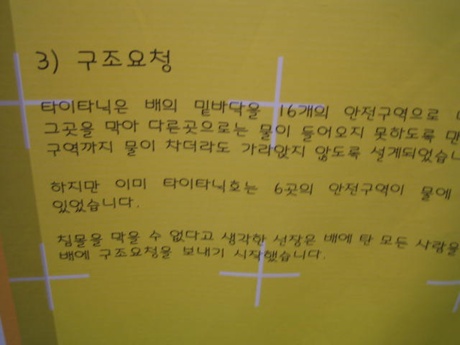 3) 구조요청
타이타닉은 배의 밑바닥을 16개의 안전구역으로
그곳을 막아 다른곳으로는 물이 들어오지 못하도록
구역까지 물이 차더라도 가라앉지 않도록 설계되었습니
하지만 이미 타이타닉호는 6곳의 안전구역이 물에
있었습니다.
침몰을 막을 수 없다고 생각한 선장은 배에 탄 모든 사람을
배에 구조요청을 보내기 시작했습니다.